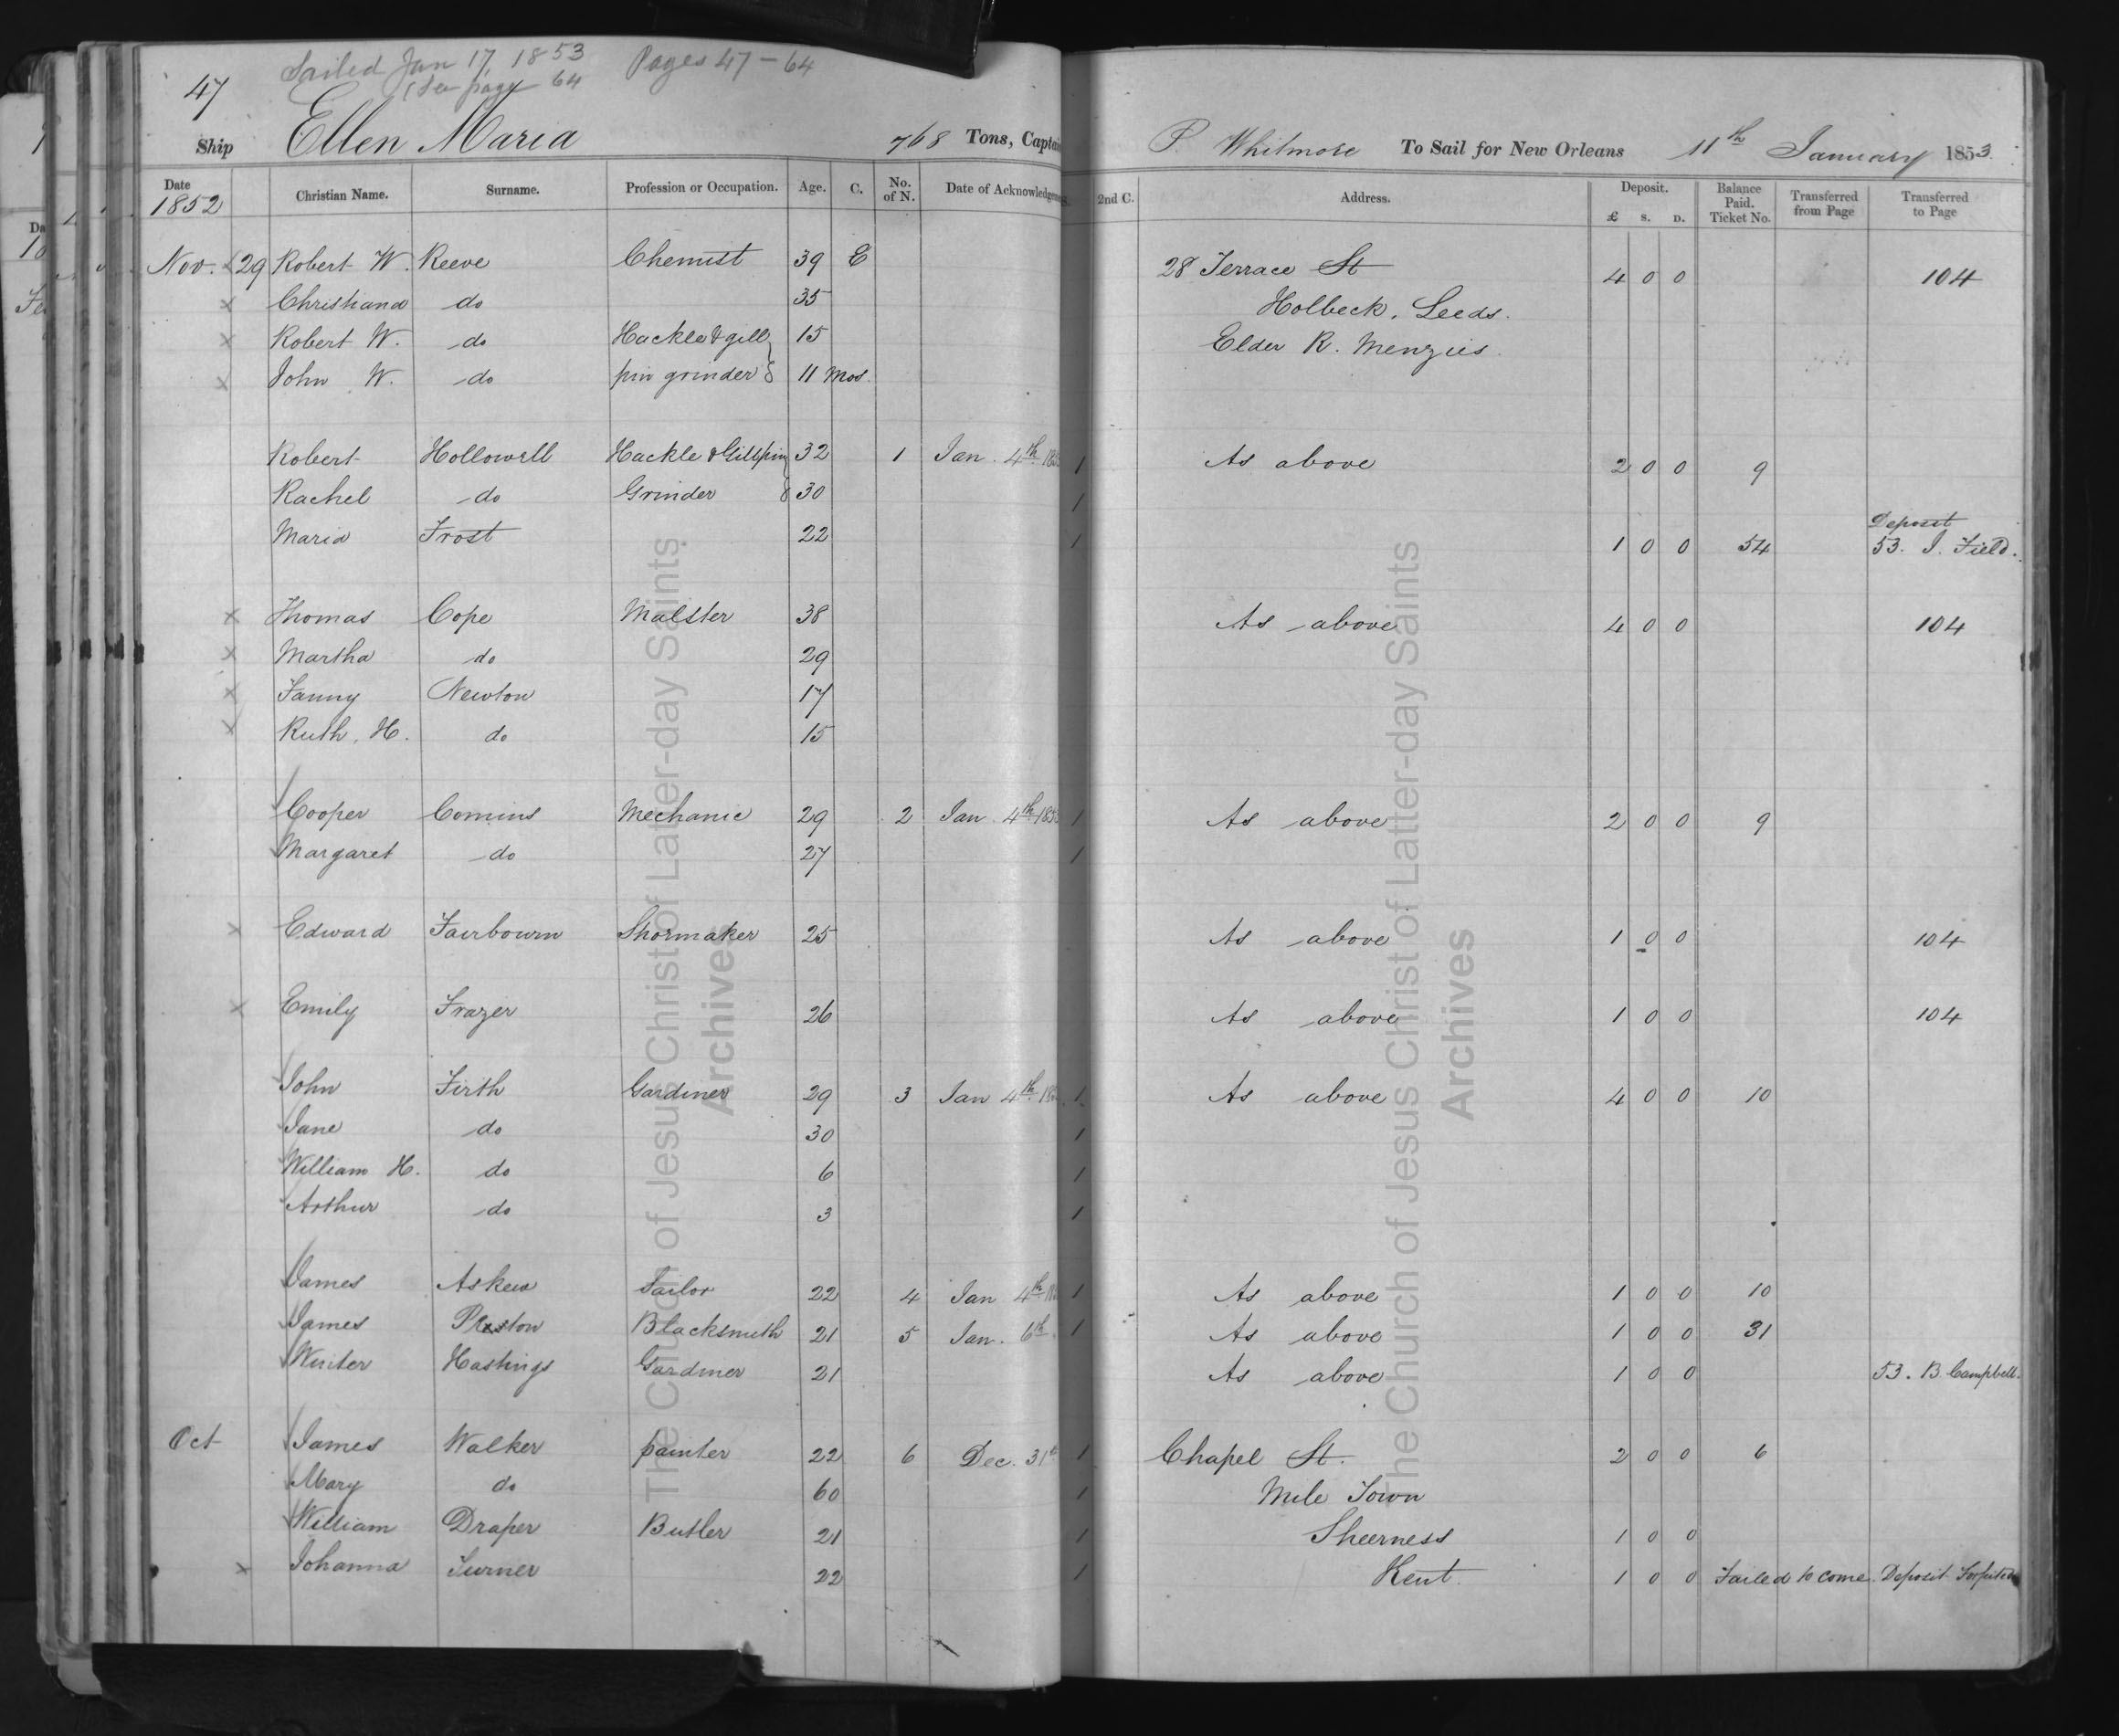 Sailed Jan 17, 1853 Pages 47-64
(See page 64
47
Ship Ellen Maria 768 Tons, Captain P. Whitmore To Sail for New Orleans 11th January 1853.
Date 1852 Christian Name. Surname. Profession or Occupation. Age. C. No. of N. Date of Acknowledgment 2nd C. Address. Deposit. £ S. D. Balance Paid. Ticket No. Transferred from Page Transferred to Page
Nov. 29 Robert W. Reeve Chemist 39 E 28 Terrace St 4 0 0 104
x Christiana do 35 Holbeck. Leeds.
x Robert W. do Hackle & gill 15 Elder R. Menzies.
x John W. do pin grinder 11 Mos.
Robert Hollowell Hackle & Gillpin 32 1 Jan. 4th 185 1 As above 2 0 0 9
Rachel do Grinder 30 1
Maria Frost 22 1 1 0 0 54 Deposit 53. J. Field.
x Thomas Cope Malster 38 As above 4 0 0 104
x Martha do 29
x Fanny Newton 17
x Ruth. H. do 15
Cooper Comins Mechanic 29 2 Jan. 4th 185 1 As above 2 0 0 9
Margaret do 27 1
x Edward Fairbourn Shoemaker 25 As above 1 0 0 104
x Emily Frazer 26 As above 1 0 0 104
John Firth Gardiner 29 3 Jan 4th 18 1 As above 4 0 0 10
Jane do 30 1
William H. do 6 1
Arthur do 3 1
James Askew Tailor 22 4 Jan 4th 18 1 As above 1 0 0 10
James Preston Blacksmith 21 5 Jan. 6th 1 As above 1 0 0 31
Winter Hastings Gardiner 21 As above 1 0 0 53. B. Campbell.
Oct James Walker painter 22 6 Dec. 31st 1 Chapel St. 2 0 0 6
Mary do 60 1 Mile Town
William Draper Butler 21 1 Sheerness 1 0 0
x Johanna Turner 22 1 Kent. 1 0 0 Failed to come. Deposit Forfeited
The Church of Jesus Christ of Latter-day Saints
Archives
The Church of Jesus Christ of Latter-day Saints
Archives